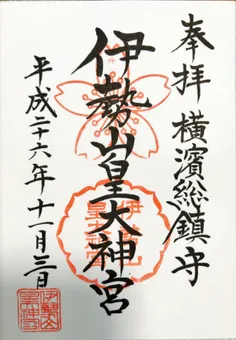 奉拝 横濱総鎮守
伊勢山皇大神宮
平成二十六年十一月三日
伊勢山
皇大神宮